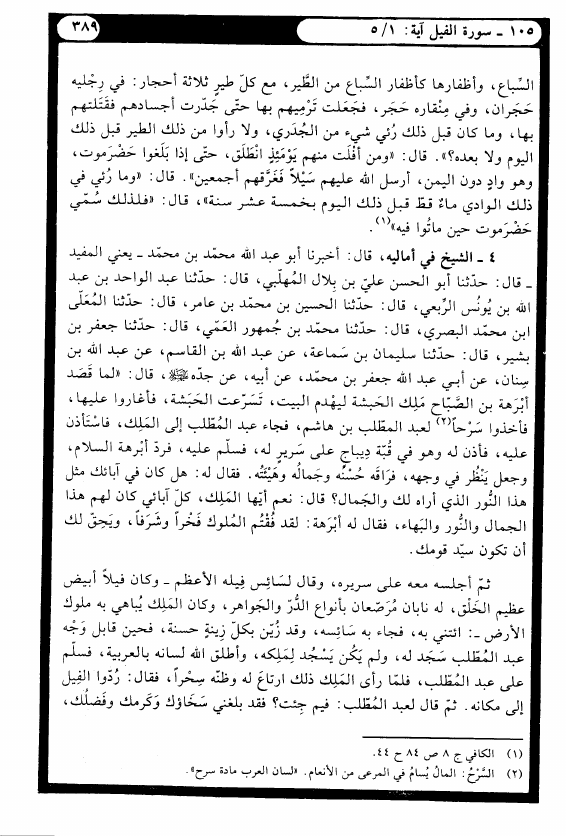 ١٠٥ ـ سورة الفيل آية: ١/ ٥
٣٨٩
السِّباع، وأظفارها كأظفار السِّباع من الطَّير، مع كلّ طيرٍ ثلاثة أحجار: في رِجْليه
حَجَران، وفي مِنْقاره حَجَر، فجَعلت تَرْميهم بها حتّى جَدّرت أجسادهم فقَتَلتهم
بها، وما كان قبل ذلك رُئي شيء من الجُدَري، ولا رأوا من ذلك الطير قبل ذلك
اليوم ولا بعده؟». قال: «ومن أفْلَت منهم يَوْمَئِذٍ انْطَلَق، حتّى إذا بَلَغوا حَضْرَموت،
وهو وادٍ دون اليمن، أرسل الله عليهم سَيْلاً فَغَرَّقهم أجمعين». قال: «وما رُئي في
ذلك الوادي ماءٌ قطّ قبل ذلك اليوم بخمسة عشر سنة»، قال: «فلذلك سُمّي
حَضْرموت حين ماتُوا فيه»(١).
٤ ـ الشيخ في أماليه، قال: أخبرنا أبو عبد الله محمّد بن محمّد ـ يعني المفيد
ـ قال: حدّثنا أبو الحسن عليّ بن بِلال المُهلّبي، قال: حدّثنا عبد الواحد بن عبد
الله بن يُونُس الرِّبعي، قال: حدّثنا الحسين بن محمّد بن عامر، قال: حدّثنا المُعَلّى
ابن محمّد البصري، قال: حدّثنا محمّد بن جُمهور العَمّي، قال: حدّثنا جعفر بن
بشير، قال: حدّثنا سليمان بن سَماعة، عن عبد الله بن القاسم، عن عبد الله بن
سِنان، عن أبي عبد الله جعفر بن محمّد، عن أبيه، عن جدّه ﷺ، قال: «لما قَصَد
أبْرَهة بن الصَّبّاح مَلِك الحَبشة ليهْدِم البيت، تَسَرّعت الحَبَشة، فأغاروا عليها،
فأخذوا سَرْحاً(٢) لعبد المطّلب بن هاشم، فجاء عبد المُطّلب إلى المَلِك، فاسْتأذن
عليه، فأذن له وهو في قُبّة ديباجٍ على سَريرٍ له، فسلّم عليه، فردّ أبْرهة السلام،
وجعل يَنْظُر في وجهه، فرَاقَه حُسْنُه وجَمالُه وهَيْئَتُه. فقال له: هل كان في آبائك مثل
هذا النُّور الذي أراه لك والجَمال؟ قال: نعم أيّها المَلِك، كلّ آبائي كان لهم هذا
الجمال والنُّور والبَهاء، فقال له أبْرَهة: لقد فُقْتُم المُلوك فَخْراً وشَرَفاً، ويَحِقّ لك
أن تكون سيّد قومك.
ثمّ أجلسه معه على سريره، وقال لسَائِس فِيله الأعظم ـ وكان فيلاً أبيض
عظيم الخَلْق، له نابان مُرَصّعان بأنواع الدُّرّ والجَواهر، وكان المَلِك يُباهي به ملوك
الأرض ـ: ائتني به، فجاء به سَائِسه، وقد زُيّن بكلّ زِينةٍ حسنة، فحين قابل وَجْه
عبد المُطّلب سَجَد له، ولم يَكُن يَسْجُد لِمَلِكه، وأطلق الله لسانه بالعربية، فسلّم
على عبد المُطّلب، فلمّا رأى المَلِك ذلك ارتاعَ له وظنّه سِحْراً، فقال: رُدّوا الفِيل
إلى مكانه. ثمّ قال لعبد المُطّلب: فيم جِئت؟ فقد بلغني سَخَاؤك وكَرمك وفَضلُك،
(١) الكافي ج ٨ ص ٨٤ ح ٤٤.
(٢) السَّرْحُ: المالُ يُسامُ في المرعى من الأنعام. «لسان العرب مادة سرح».